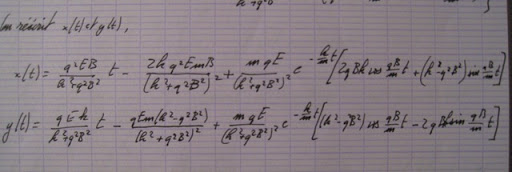 k²+q²B²
On réécrit x(t) et y(t),
x(t) = q²EB/(k²+q²B²) t - 2kq²EmB/(k²+q²B²)² + mqE/(k²+q²B²)² e^(-k/m t) [2qBk cos qB/m t + (k²-q²B²) sin qB/m t]
y(t) = qEk/(k²+q²B²) t - qEm(k²-q²B²)/(k²+q²B²)² + mqE/(k²+q²B²)² e^(-k/m t) [(k²-q²B²) cos qB/m t - 2qBk sin qB/m t]